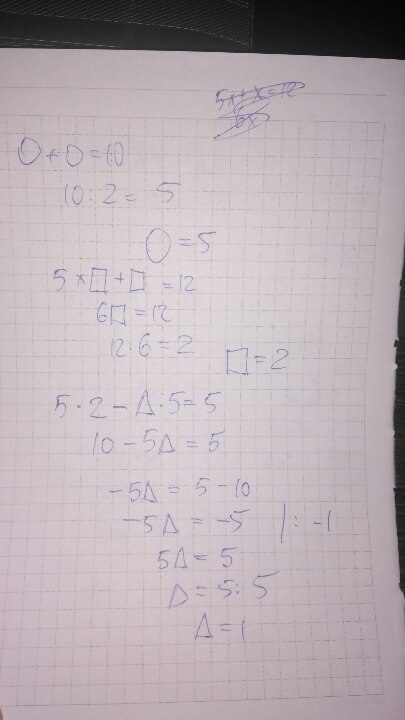 5x+x=12
6x
O+O=10
10:2=5
O=5
5×□+□=12
6□=12
12:6=2
□=2
5·2-Δ·5=5
10-5Δ=5
-5Δ=5-10
-5Δ=-5 |:-1
5Δ=5
Δ=5:5
Δ=1